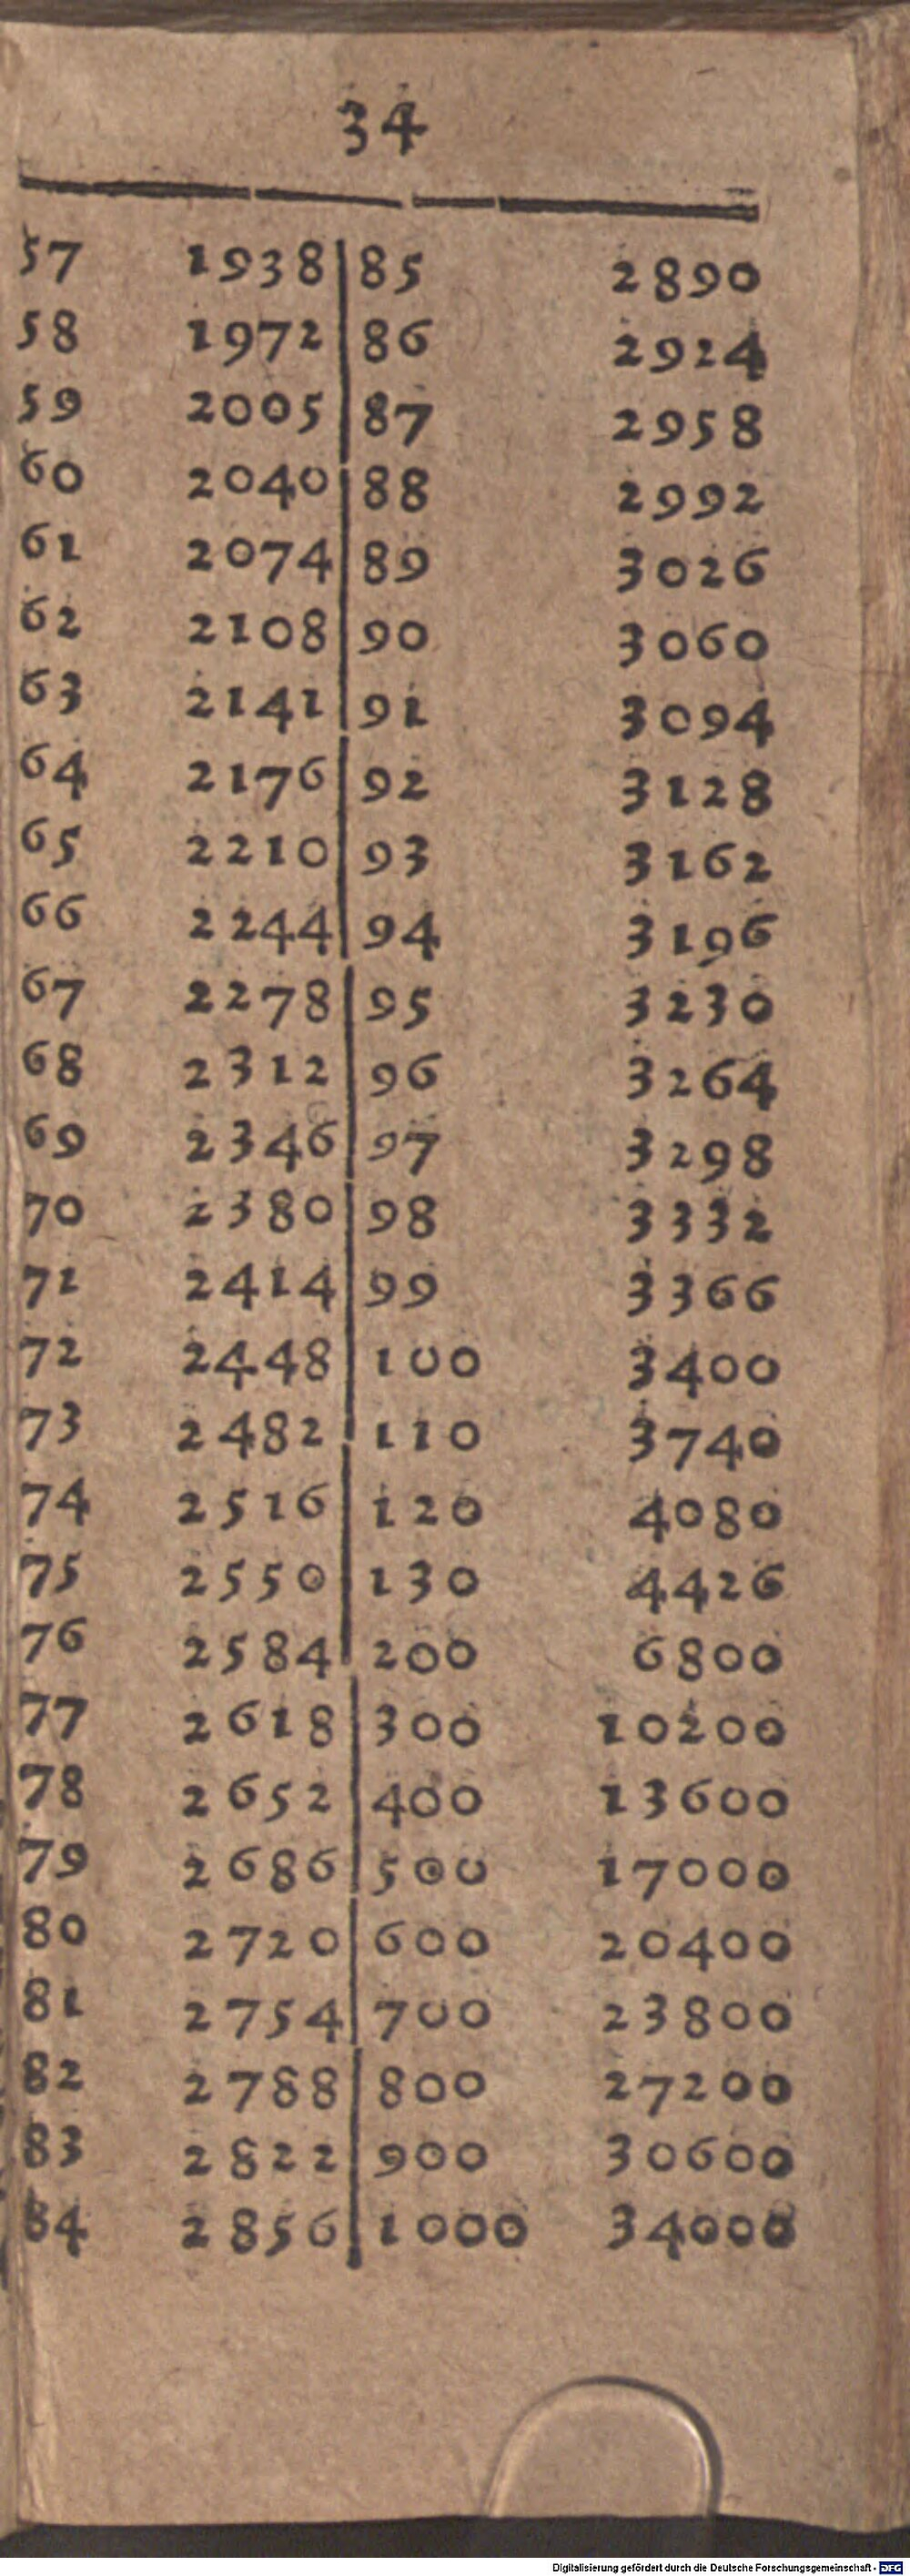 34
57 1938 85 2890
58 1972 86 2924
59 2005 87 2958
60 2040 88 2992
61 2074 89 3026
62 2108 90 3060
63 2141 91 3094
64 2176 92 3128
65 2210 93 3162
66 2244 94 3196
67 2278 95 3230
68 2312 96 3264
69 2346 97 3298
70 2380 98 3332
71 2414 99 3366
72 2448 100 3400
73 2482 110 3740
74 2516 120 4080
75 2550 130 4426
76 2584 200 6800
77 2618 300 10200
78 2652 400 13600
79 2686 500 17000
80 2720 600 20400
81 2754 700 23800
82 2788 800 27200
83 2822 900 30600
84 2856 1000 34000
Digitalisierung gefördert durch die Deutsche Forschungsgemeinschaft - DFG